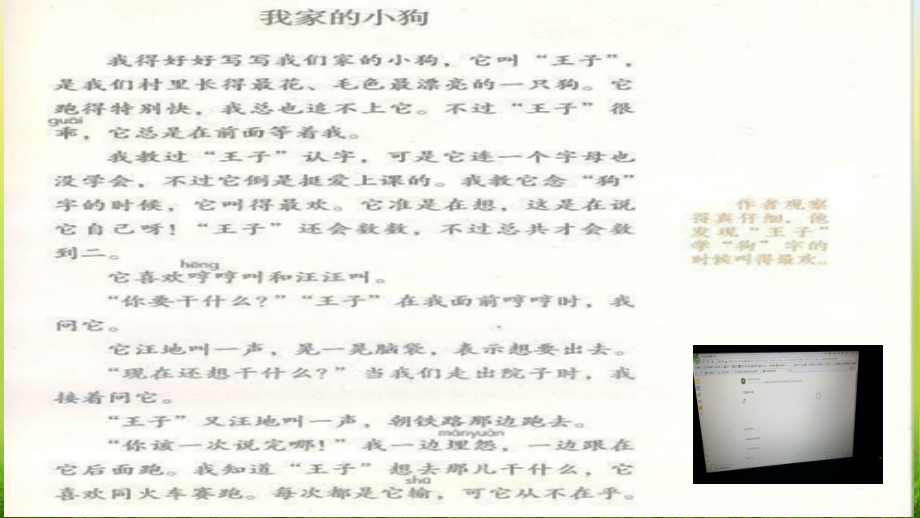 我家的小狗
我得好好写写我们家的小狗，它叫“王子”，
是我们村里长得最花、毛色最漂亮的一只狗。它
跑得特别快，我总也追不上它。不过“王子”很
guāi
乖，它总是在前面等着我。
我教过“王子”认字，可是它连一个字母也
没学会，不过它倒是挺爱上课的。我教它念“狗”
字的时候，它叫得最欢。它准是在想，这是在说
它自己呀！“王子”还会数数，不过总共才会数
到二。
hēng
它喜欢哼哼叫和汪汪叫。
“你要干什么？”“王子”在我面前哼哼时，我
问它。
它汪地叫一声，晃一晃脑袋，表示想要出去。
“现在还想干什么？”当我们走出院子时，我
接着问它。
“王子”又汪地叫一声，朝铁路那边跑去。
mányuàn
“你该一次说完哪！”我一边埋怨，一边跟在
它后面跑。我知道“王子”想去那儿干什么，它
shū
喜欢同火车赛跑。每次都是它输，可它从不在乎。
作者观察
得真仔细，他
发现“王子”
学“狗”字的
时候叫得最欢。